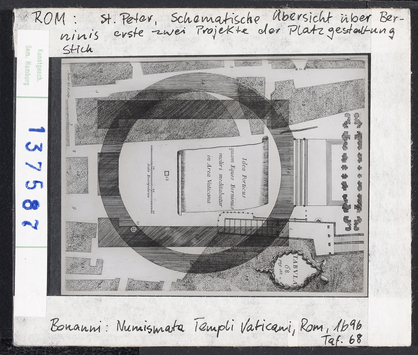 ROM: St. Peter, Schematische Übersicht über Ber-
ninis erste zwei Projekte der Platzgestaltung
Stich
137587
Idea Porticus
quam Eques Berninus
in Area Vaticana
TABULA
68
Bonanni: Numismata Templi Vaticani, Rom, 1696
Taf. 68